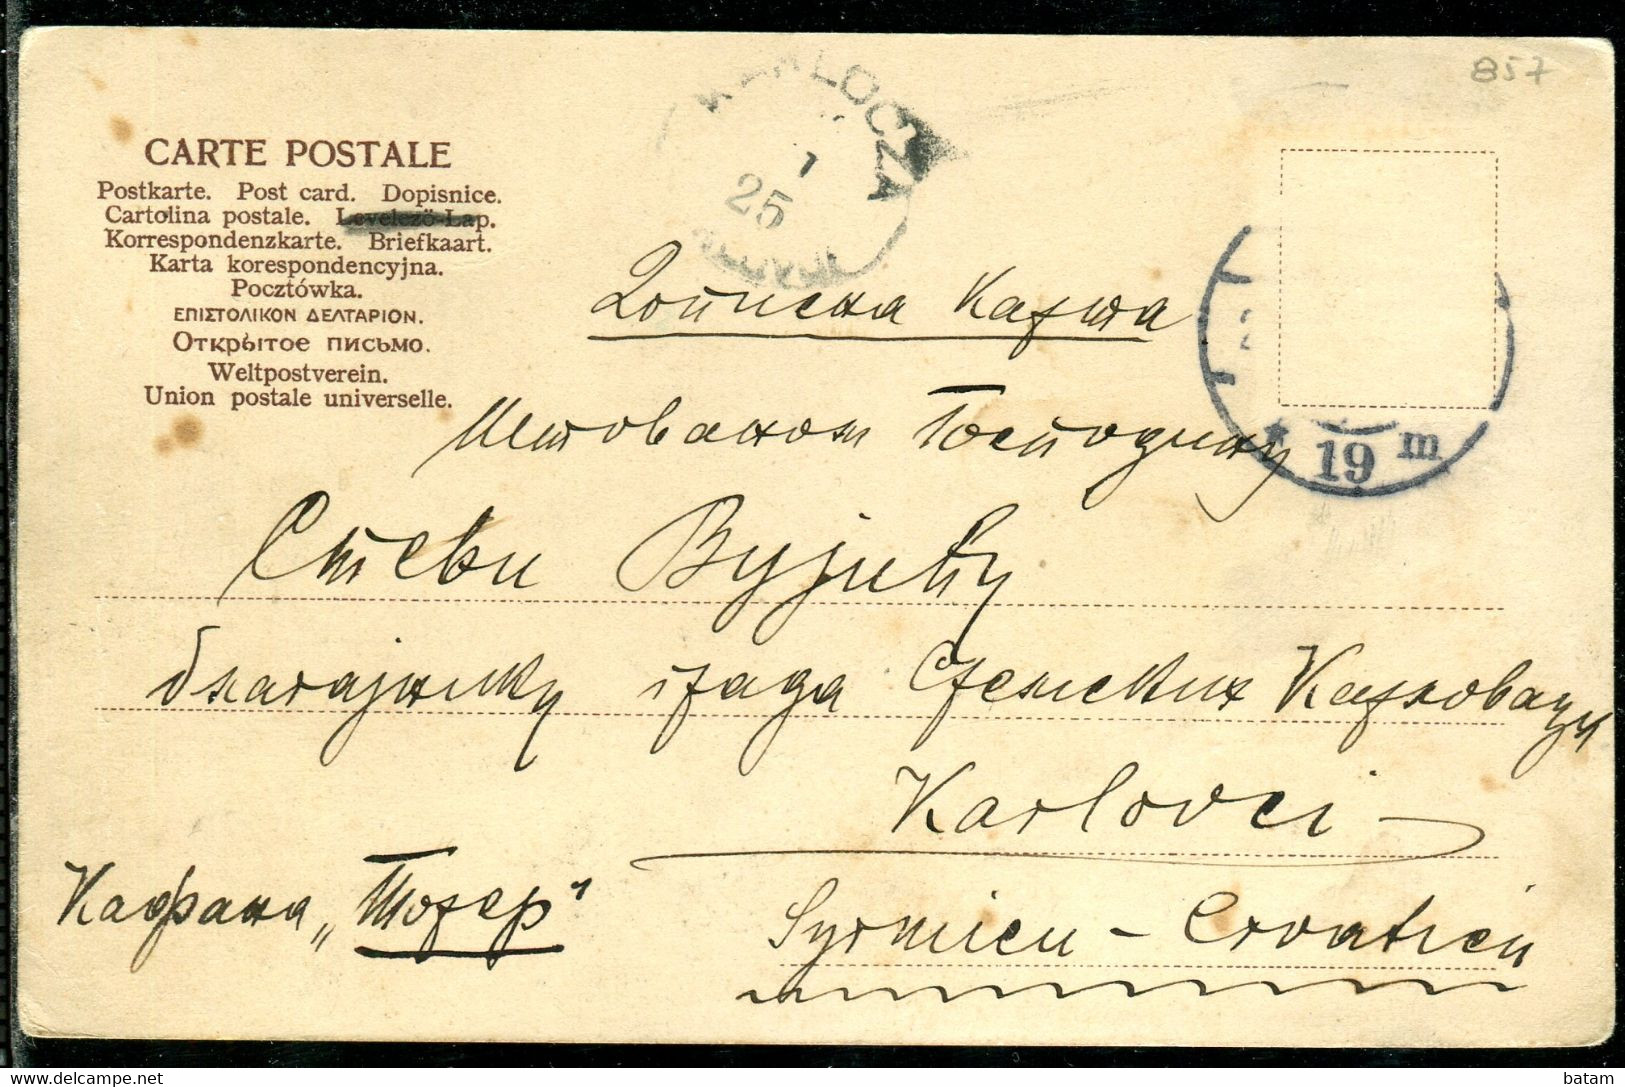 857
KARLOCZA
1
25
CARTE POSTALE
Postkarte. Post card. Dopisnice.
Cartolina postale. Levelező-Lap.
Korrespondenzkarte. Briefkaart.
Karta korespondencyjna.
Pocztówka.
ΕΠΙΣΤΟΛΙΚΟΝ ΔΕΛΤΑΡΙΟΝ.
Открытое письмо.
Weltpostverein.
Union postale universelle.
Дописна Карта
19 m
Поштованом Господину
Стеви Вујићу
благајнику града Сремских Карловаца
Karlovci
Кафана „Тозер“
Syrmien - Croatien
batam